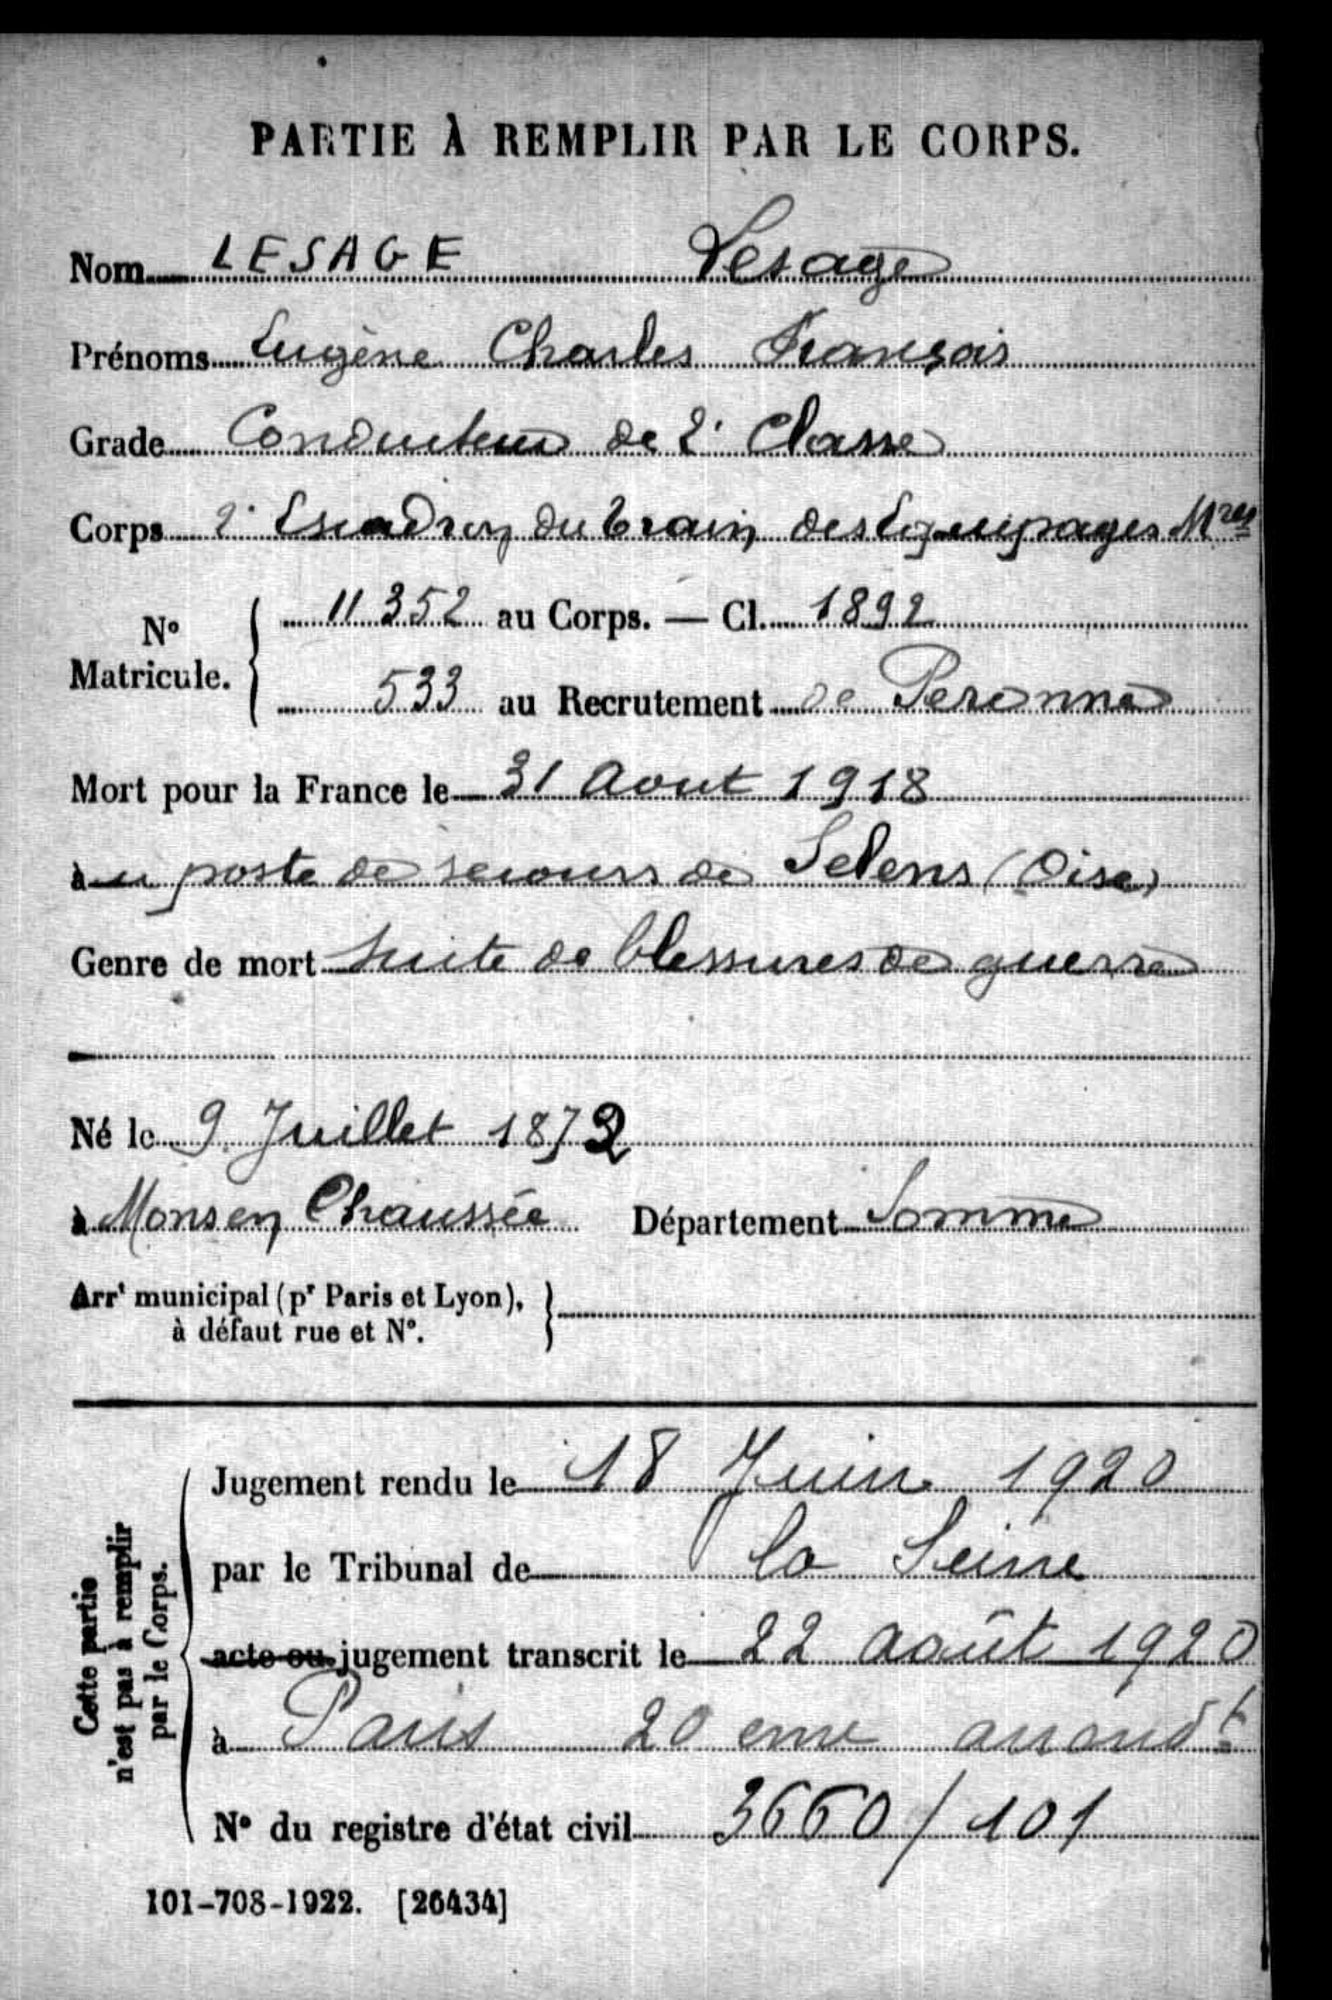 PARTIE À REMPLIR PAR LE CORPS.
Nom LESAGE Lesage
Prénoms Eugène Charles François
Grade Conducteur de 2e Classe
Corps 2e Escadron du train des Equipages Mres
N° Matricule. 11352 au Corps. — Cl. 1892
533 au Recrutement de Peronne
Mort pour la France le 31 Aout 1918
au poste de secours de Selens (Oise)
Genre de mort suite de blessures de guerre
Né le 9 Juillet 1872
à Mons en Chaussée Département Somme
Arrt municipal (pr Paris et Lyon),
à défaut rue et N°.
Cette partie
n'est pas à remplir
par le Corps.
Jugement rendu le 18 Juin 1920
par le Tribunal de la Seine
acte ou jugement transcrit le 22 août 1920
à Paris 20 eme arrondt
N° du registre d'état civil 3660/101
101-708-1922. [26434]